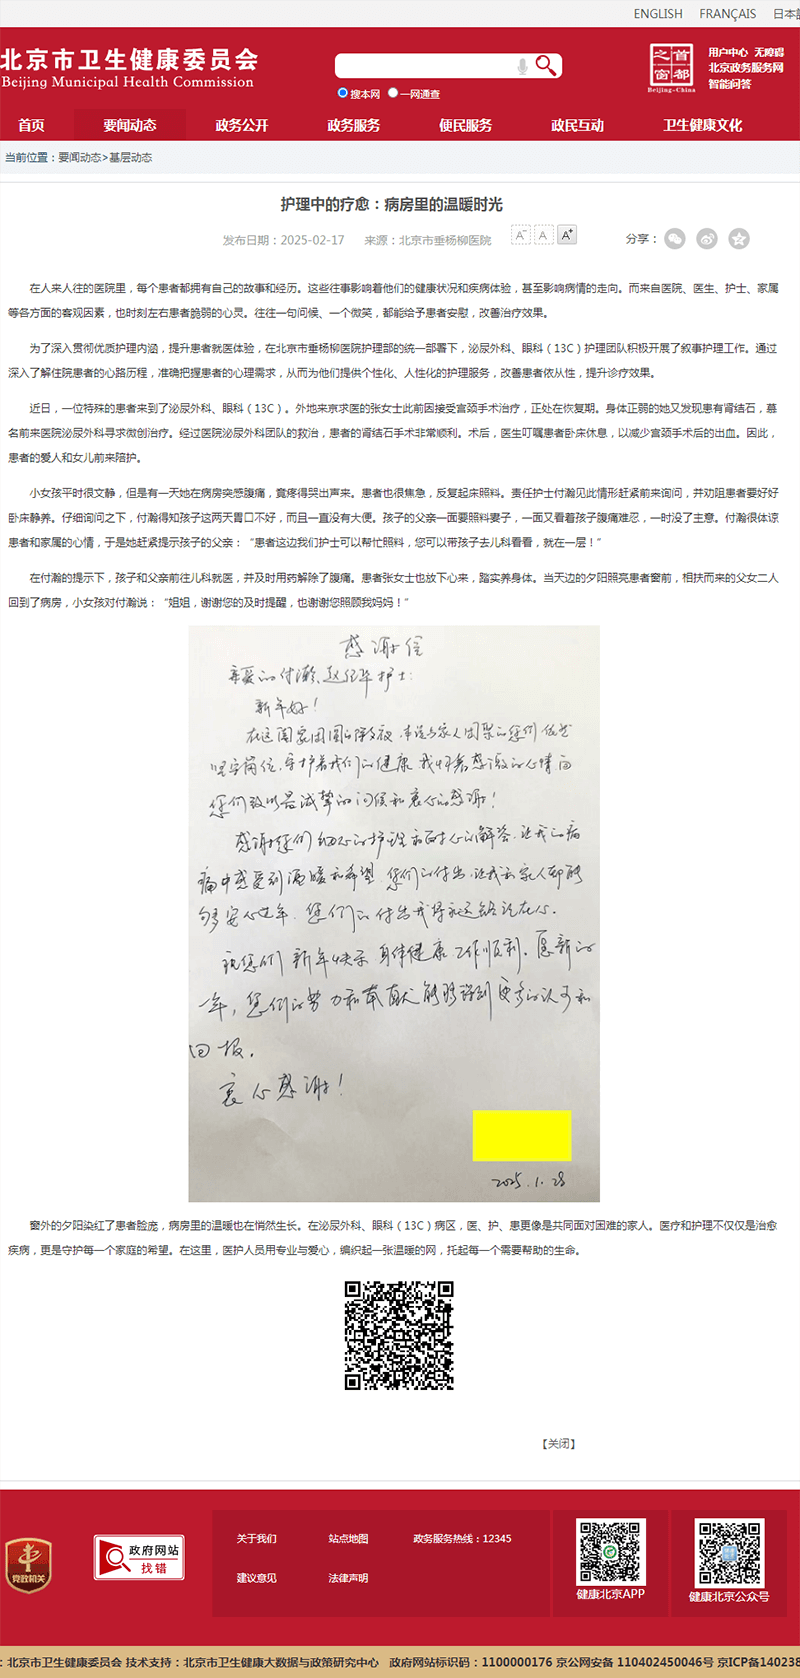 ENGLISH FRANÇAIS 日本語
北京市卫生健康委员会
Beijing Municipal Health Commission
搜本网 一网通查
首都之窗
Beijing-China
用户中心 无障碍
北京政务服务网
智能问答
首页 要闻动态 政务公开 政务服务 便民服务 政民互动 卫生健康文化
当前位置：要闻动态>基层动态
护理中的疗愈：病房里的温暖时光
发布日期：2025-02-17 来源：北京市垂杨柳医院 A- A A+ 分享：
在人来人往的医院里，每个患者都拥有自己的故事和经历。这些往事影响着他们的健康状况和疾病体验，甚至影响病情的走向。而来自医院、医生、护士、家属
等各方面的客观因素，也时刻左右患者脆弱的心灵。往往一句问候、一个微笑，都能给予患者安慰，改善治疗效果。
为了深入贯彻优质护理内涵，提升患者就医体验，在北京市垂杨柳医院护理部的统一部署下，泌尿外科、眼科（13C）护理团队积极开展了叙事护理工作。通过
深入了解住院患者的心路历程，准确把握患者的心理需求，从而为他们提供个性化、人性化的护理服务，改善患者依从性，提升诊疗效果。
近日，一位特殊的患者来到了泌尿外科、眼科（13C）。外地来京求医的张女士此前因接受宫颈手术治疗，正处在恢复期。身体正弱的她又发现患有肾结石，慕
名前来医院泌尿外科寻求微创治疗。经过医院泌尿外科团队的救治，患者的肾结石手术非常顺利。术后，医生叮嘱患者卧床休息，以减少宫颈手术后的出血。因此，
患者的爱人和女儿前来陪护。
小女孩平时很文静，但是有一天她在病房突感腹痛，竟疼得哭出声来。患者也很焦急，反复起床照料。责任护士付瀚见此情形赶紧前来询问，并劝阻患者要好好
卧床静养。仔细询问之下，付瀚得知孩子这两天胃口不好，而且一直没有大便。孩子的父亲一面要照料妻子，一面又看着孩子腹痛难忍，一时没了主意。付瀚很体谅
患者和家属的心情，于是她赶紧提示孩子的父亲：“患者这边我们护士可以帮忙照料，您可以带孩子去儿科看看，就在一层！”
在付瀚的提示下，孩子和父亲前往儿科就医，并及时用药解除了腹痛。患者张女士也放下心来，踏实养身体。当天边的夕阳照亮患者窗前，相扶而来的父女二人
回到了病房，小女孩对付瀚说：“姐姐，谢谢您的及时提醒，也谢谢您照顾我妈妈！”
感谢信
亲爱的付瀚、赵 护士：
新年好！
在这阖家团圆的除夕夜，本该与家人团聚的您们依然
坚守岗位，守护着我们的健康，我怀着感激的心情向
您们致以最诚挚的问候和衷心的感谢！
感谢您们细心的护理和耐心的解答，让我的病
痛中感受到温暖和希望，您们的付出，让我和家人都能
够安心过年，您们的付出我将永远铭记在心。
祝您们新年快乐，身体健康，工作顺利。愿新的
一年，您们的努力和奉献能够得到更多的认可和
回报。
衷心感谢！
2025.1.28
窗外的夕阳染红了患者脸庞，病房里的温暖也在悄然生长。在泌尿外科、眼科（13C）病区，医、护、患更像是共同面对困难的家人。医疗和护理不仅仅是治愈
疾病，更是守护每一个家庭的希望。在这里，医护人员用专业与爱心，编织起一张温暖的网，托起每一个需要帮助的生命。
【关闭】
党政机关
政府网站
找错
关于我们 站点地图 政务服务热线：12345
建议意见 法律声明
健康北京APP
健康北京公众号
：北京市卫生健康委员会 技术支持：北京市卫生健康大数据与政策研究中心 政府网站标识码：1100000176 京公网安备 110402450046号 京ICP备140238